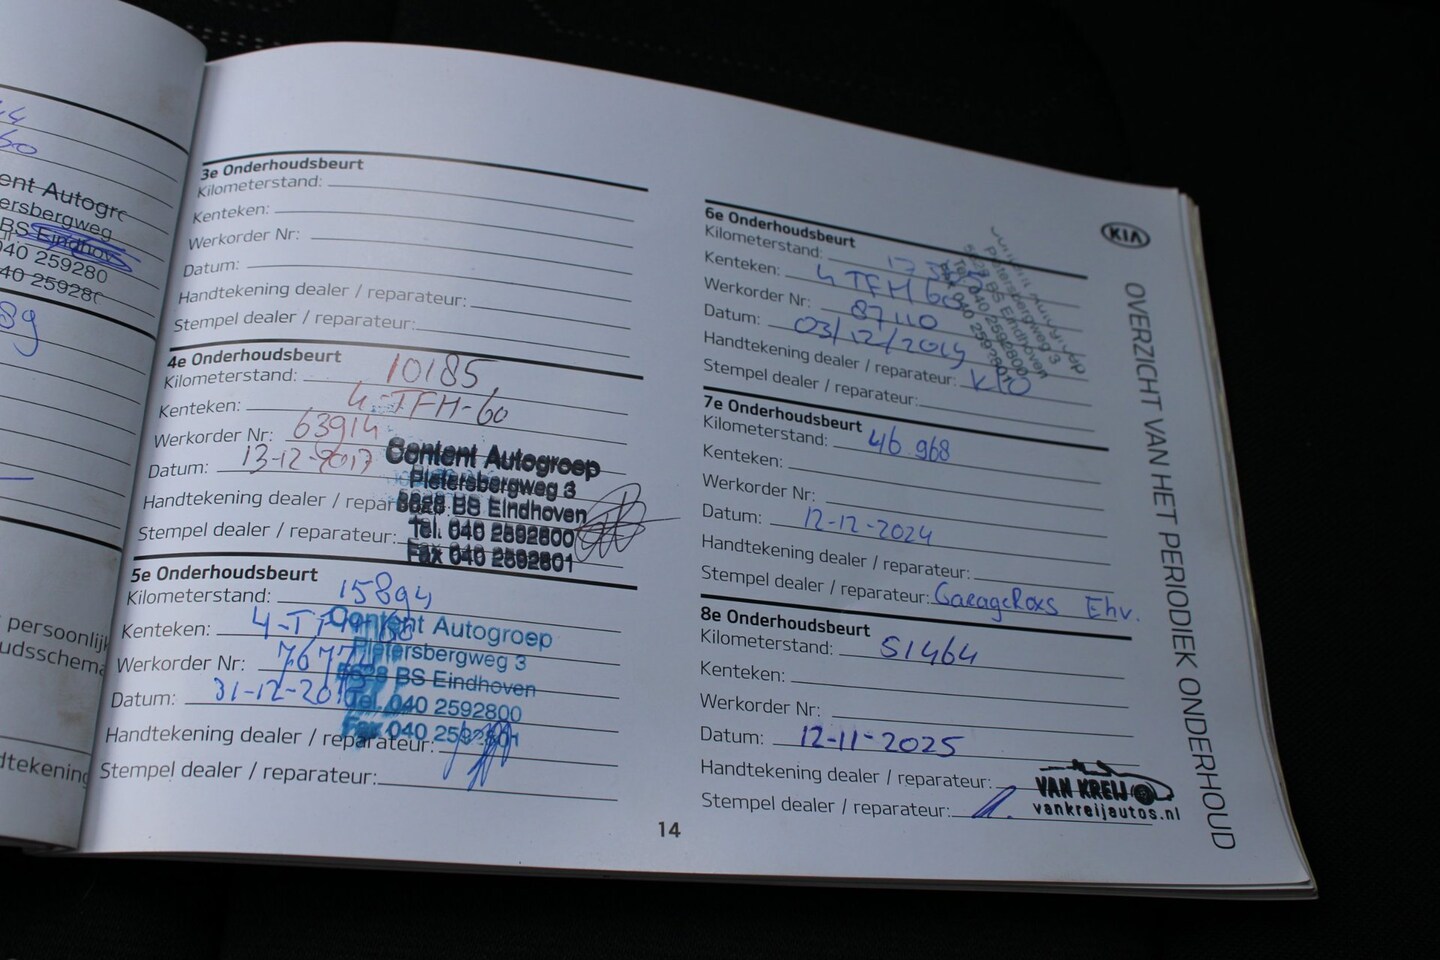 ent Autogr
ersbergweg
BS Eindhov
040 259280
40 25928
persoonlijk
udsschema
dtekening
3e Onderhoudsbeurt
Kilometerstand:
Kenteken:
Werkorder Nr:
Datum:
Handtekening dealer / reparateur:
Stempel dealer / reparateur:
4e Onderhoudsbeurt
Kilometerstand: 10185
Kenteken: 4-TFH-60
Werkorder Nr: 63914
Datum: 13-12-2017
Handtekening dealer / repar
Stempel dealer / reparateur:
Content Autogroep
Pietersbergweg 3
5628 BS Eindhoven
Tel. 040 2592800
Fax 040 2592801
5e Onderhoudsbeurt
Kilometerstand: 15894
Kenteken: 4-T
Werkorder Nr: 7677
Datum: 31-12-201
Handtekening dealer / reparateur:
Stempel dealer / reparateur:
Content Autogroep
Pietersbergweg 3
5628 BS Eindhoven
Tel. 040 2592800
Fax 040 2592801
14
6e Onderhoudsbeurt
Kilometerstand:
Kenteken: 4 TFH 60
Werkorder Nr: 87110
Datum: 03/12/2019
Handtekening dealer / reparateur:
Stempel dealer / reparateur:
Pietersbergweg 3
BS Eindhoven
Tel. 040 2592800
040 2592801
7e Onderhoudsbeurt
Kilometerstand: 46 968
Kenteken:
Werkorder Nr:
Datum: 12-12-2024
Handtekening dealer / reparateur:
Stempel dealer / reparateur: GarageRoxs Ehv.
8e Onderhoudsbeurt
Kilometerstand: 51464
Kenteken:
Werkorder Nr:
Datum: 12-11-2025
Handtekening dealer / reparateur:
Stempel dealer / reparateur:
VAN KREIJ
vankreijautos.nl
KIA
OVERZICHT VAN HET PERIODIEK ONDERHOUD